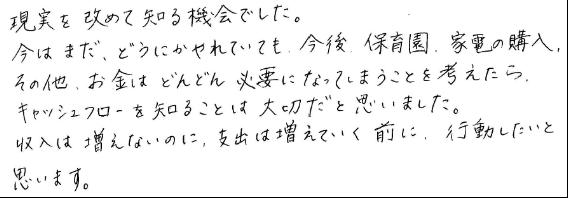 現実を改めて知る機会でした。
今はまだ、どうにかやれていても、今後、保育園、家電の購入、
その他、お金はどんどん必要になってしまうことを考えたら、
キャッシュフローを知ることは大切だと思いました。
収入は増えないのに、支出は増えていく前に、行動したいと
思います。